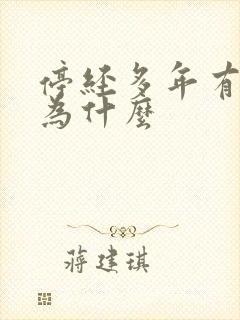 停经多年有
為什麼
蔣建琪